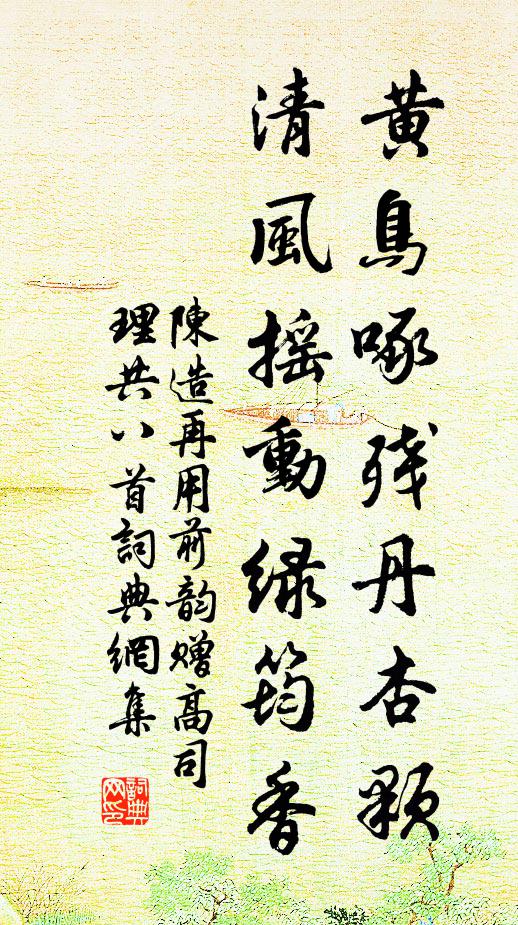 黄鳥啄残丹杏顆
清風摇動緑筠香
陳造再用前韵贈高司
理共八首詞典網集
詞典网印